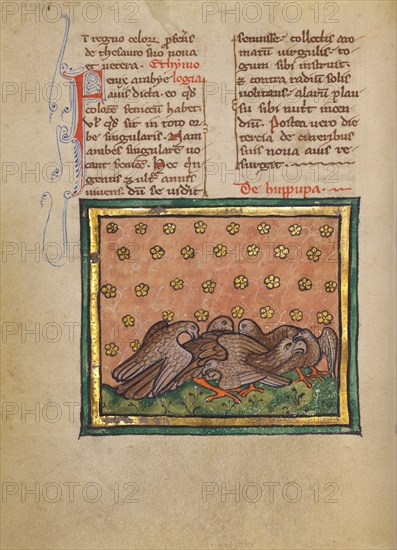 t regno celorum profert
de thesauro suo nova
et vetera. Ethymo
Fenix arabye logia
avis dicta. eo quod
colorem feniceum habet
vel quod sit in toto or
be singularis. Nam
arabes singularem vo
cant fenice. Hec quin
gentis et ultra annis
vivens. dum se videt
senuisse. collectis aro
matum virgulis. ro
gum sibi instruit
et contra radium solis
volitans. alarum plau
su sibi nutrit incen
dium. Postea vero die
tercia de cineribus
suis nova avis re
surgit.
De huppupa.
PHOTO 12